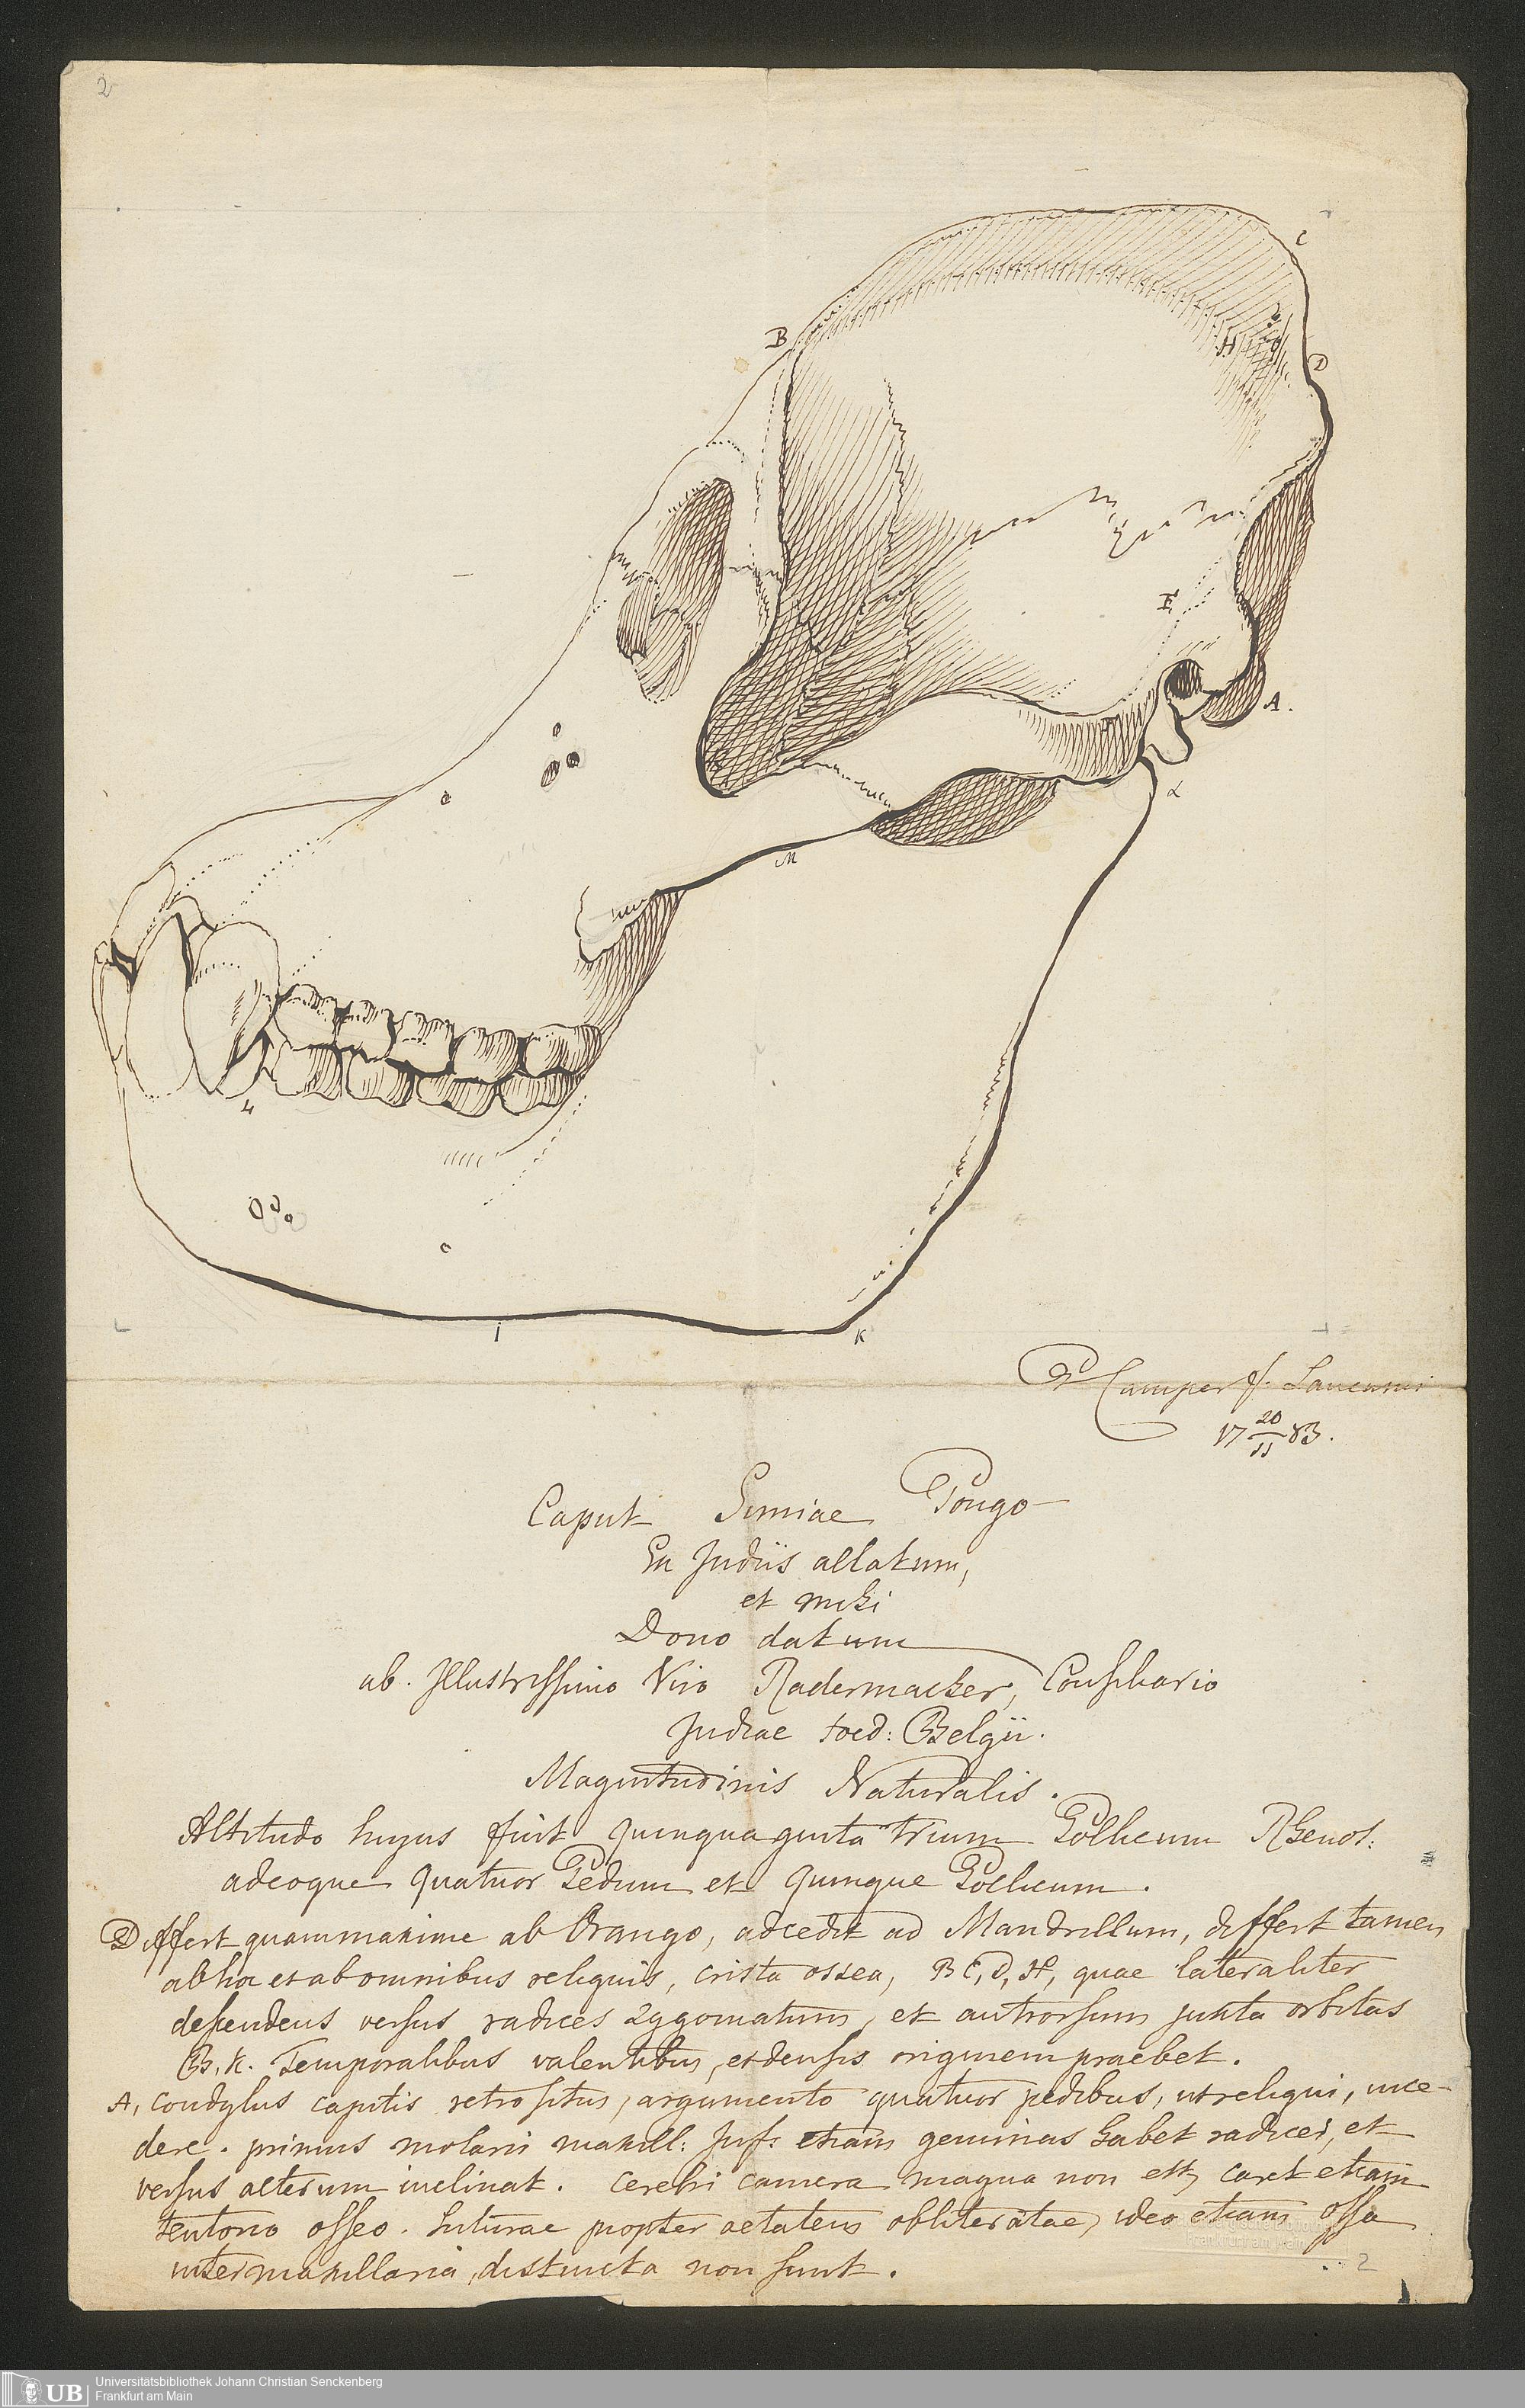 2
C
B
H
D
E
A.
L
M
L
I
K
P Camper f.
17 20/11 83.
Caput Simiae Pongo
Ex Indiis allatum,
et mihi
Dono datum
ab. Illustrissimo Viro Radermacher, Consiliario
Indiae foed: Belgii.
Magnitudinis Naturalis.
Altitudo hujus fuit quinquaginta trium Pollicum Rhenol:
adeoque quatuor Pedum et quinque Pollicum.
Differt quammaxime ab Orango, accedit ad Mandrillum, differt tamen
ab hoc et ab omnibus reliquis, crista ossea, B C, D, H, quae lateraliter
descendens versus radices zygomatum, et antrorsum juxta orbitas
B. K. Temporalibus valentibus, et densis originem praebet.
A, condylus capitis retrositus, argumento quatuor pedibus, ut reliqui, ince-
dere. primus molaris maxill: Inf: etiam geminas habet radices, et
versus alterum inclinat. Cerebri camera magna non est, caret etiam
tentorio osseo. Suturae propter aetatem obliteratae, ideo etiam ossa
intermaxillaria, distincta non sunt.
2
UB Universitätsbibliothek Johann Christian Senckenberg
Frankfurt am Main